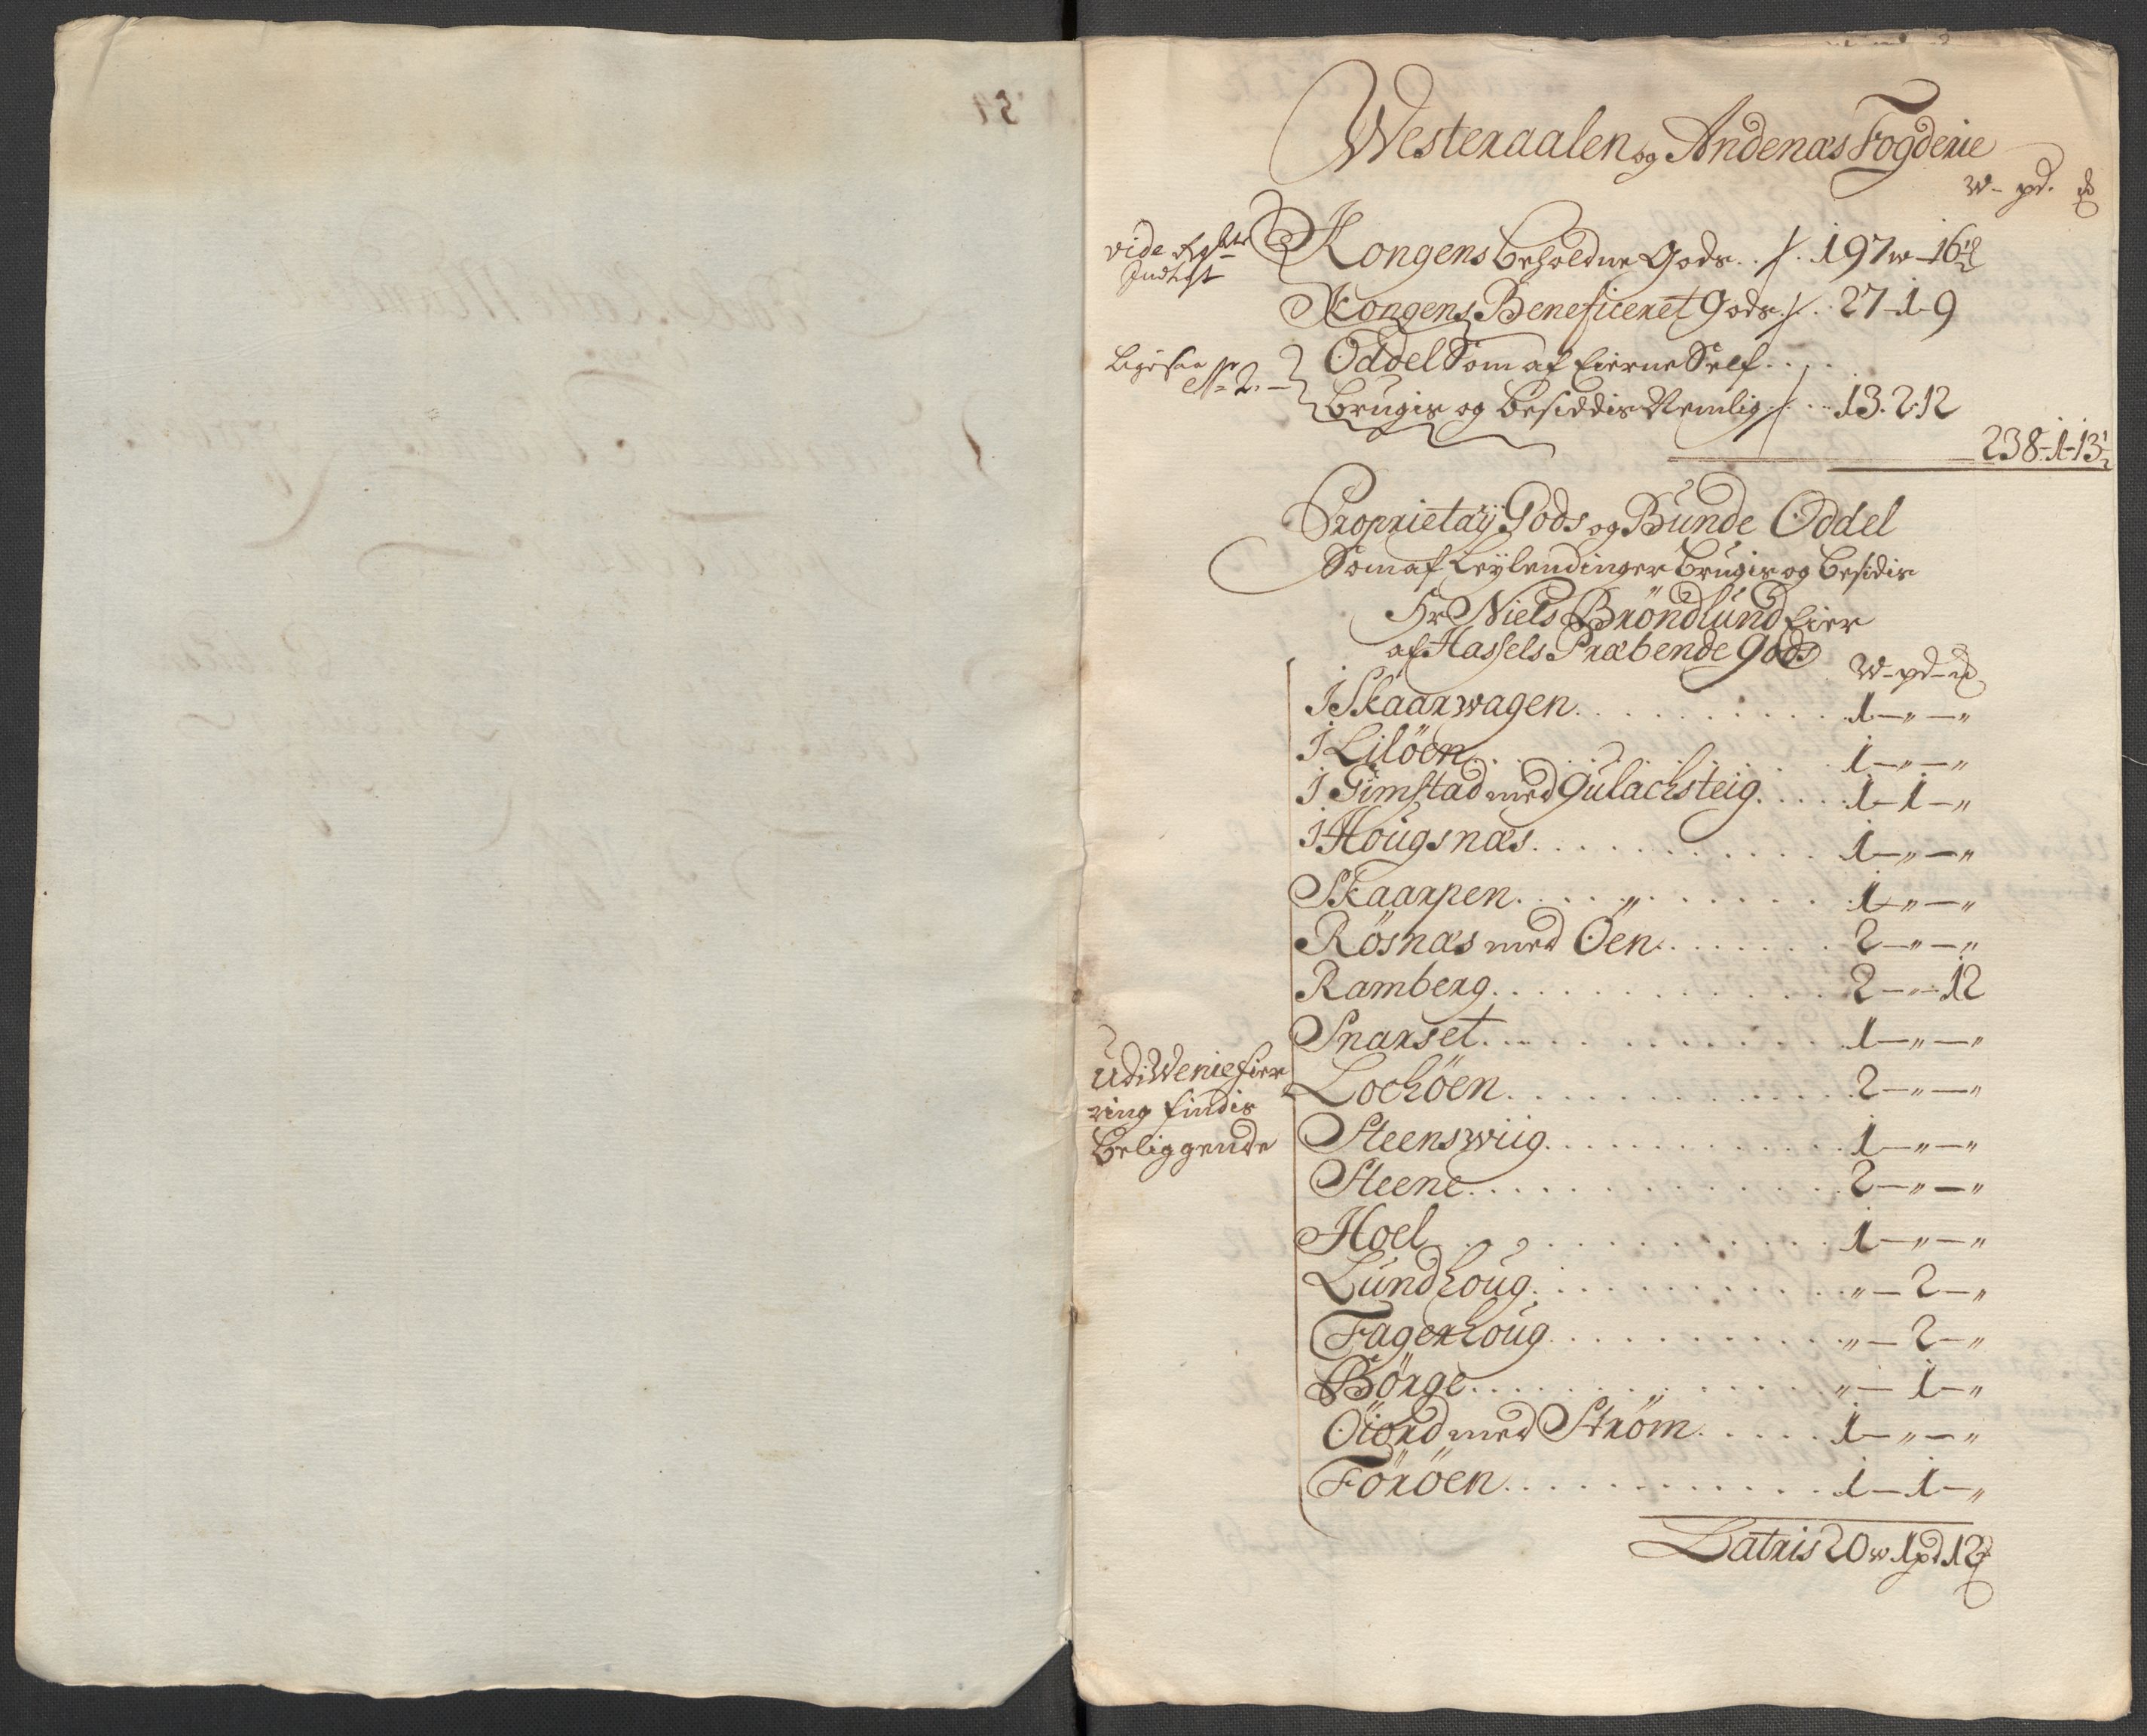 Westeraalen og Andenæs Fogderie
W - pd. ℔
vide
Indtegt
Kongens beholdne Gods . . / . 197 w - 16½
Kongens Beneficeret Gods . / . 27 - 1 - 9
ligesaa
No 2. -
Oddel Som af Eierne Self . . . .
brugis og besiddis Nemlig . / . . . 13. 2. 12
238 - 1 - 13½
Proprietarÿ Gods og Bunde Oddel
Som af Leÿlendinger brugis og besidis
Hr Niels Bröndlund Eier
af Hassels Præbende Gods
W - pd - ℔
I Skaarwagen . . . . . . . . . 1 - „ - „
I Lilöen . . . . . . . . . 1 - „ - „
I Gimstad med Gulachsteig . . . . 1 - 1 - „
I Hougsnæs . . . . . . . . . 1 - „ - „
Skaarpen . . . . . . . . . 1 - „ - „
Rösnæs med Öen . . . . . . . 2 - „ - „
Ramberg . . . . . . . . . 2 - „ - 12
Snarset . . . . . . . . . 1 - „ - „
Udi Werie fier
ring findis
beliggende
Lochöen . . . . . . . . . 2 - „ - „
Steenswiig . . . . . . . . . 1 - „ - „
Steene . . . . . . . . . 2 - „ - „
Hoel . . . . . . . . . 1 - „ - „
Lundhoug . . . . . . . . . „ - 2 - „
Fagerhoug . . . . . . . . . „ - 2 - „
Börge . . . . . . . . . „ - 1 - „
Öiord med Ström . . . . . 1 - „ - „
Föröen . . . . . . . . . 1 - 1 - „
Latris 20 w 1 pd 12 ℔